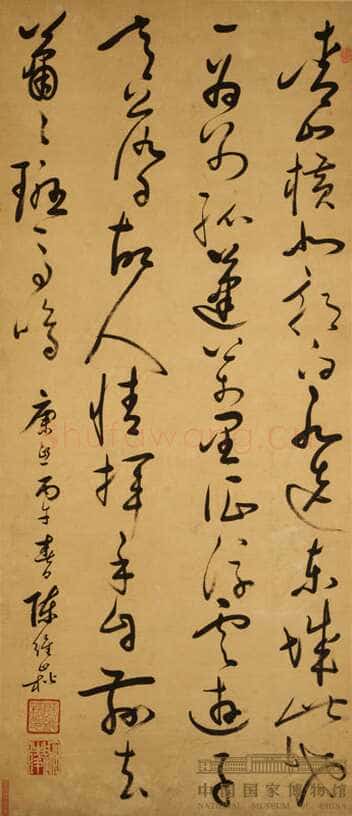 青山橫北郭白水遶東城此地
一為別孤蓬萬里征浮雲遊子
意落日故人情揮手自茲去
蕭々班馬鳴 康熙丙午春日陳維崧
中国国家博物馆
NATIONAL MUSEUM OF CHINA